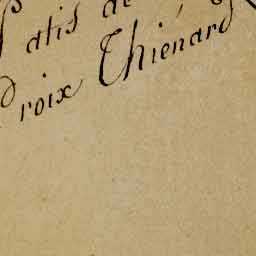 Patis de
Croix Thiénard